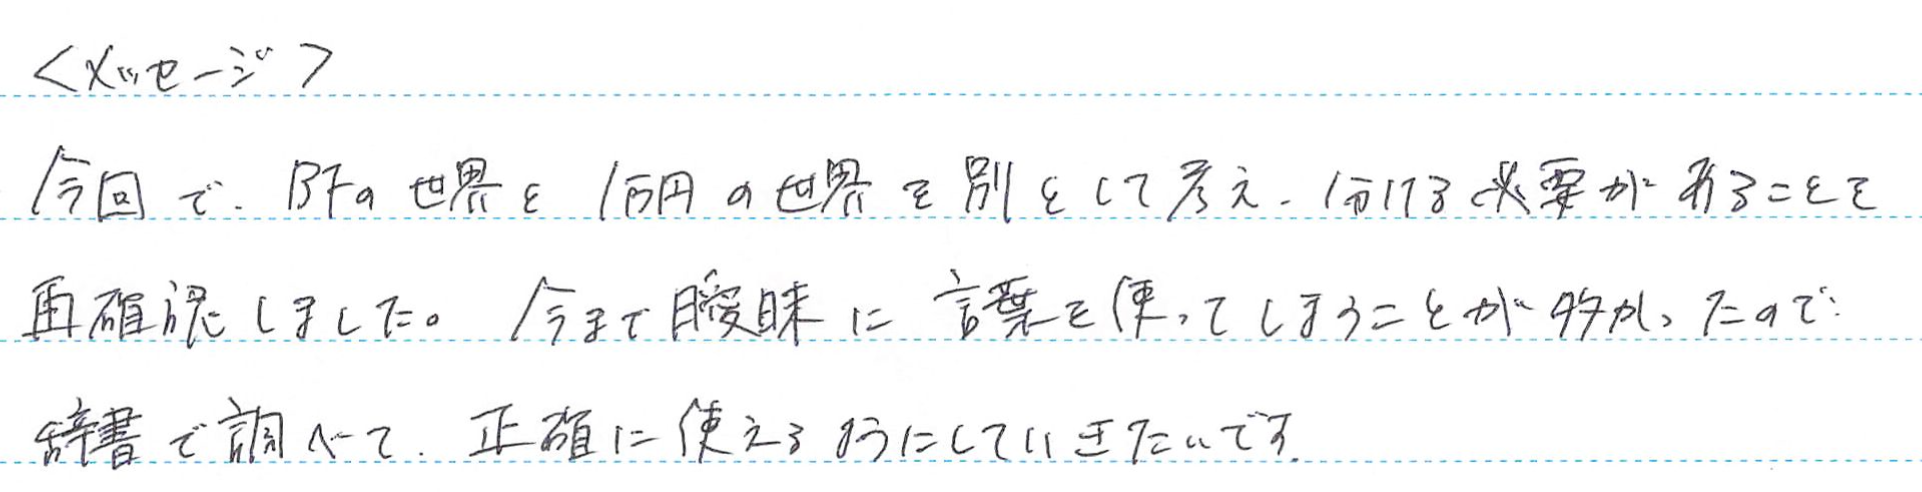 <メッセージ>
今回で、BFの世界と1万円の世界を別として考え、分ける必要があることを
再確認しました。今まで曖昧に言葉を使ってしまうことが多かったので、
辞書で調べて、正確に使えるようにしていきたいです。